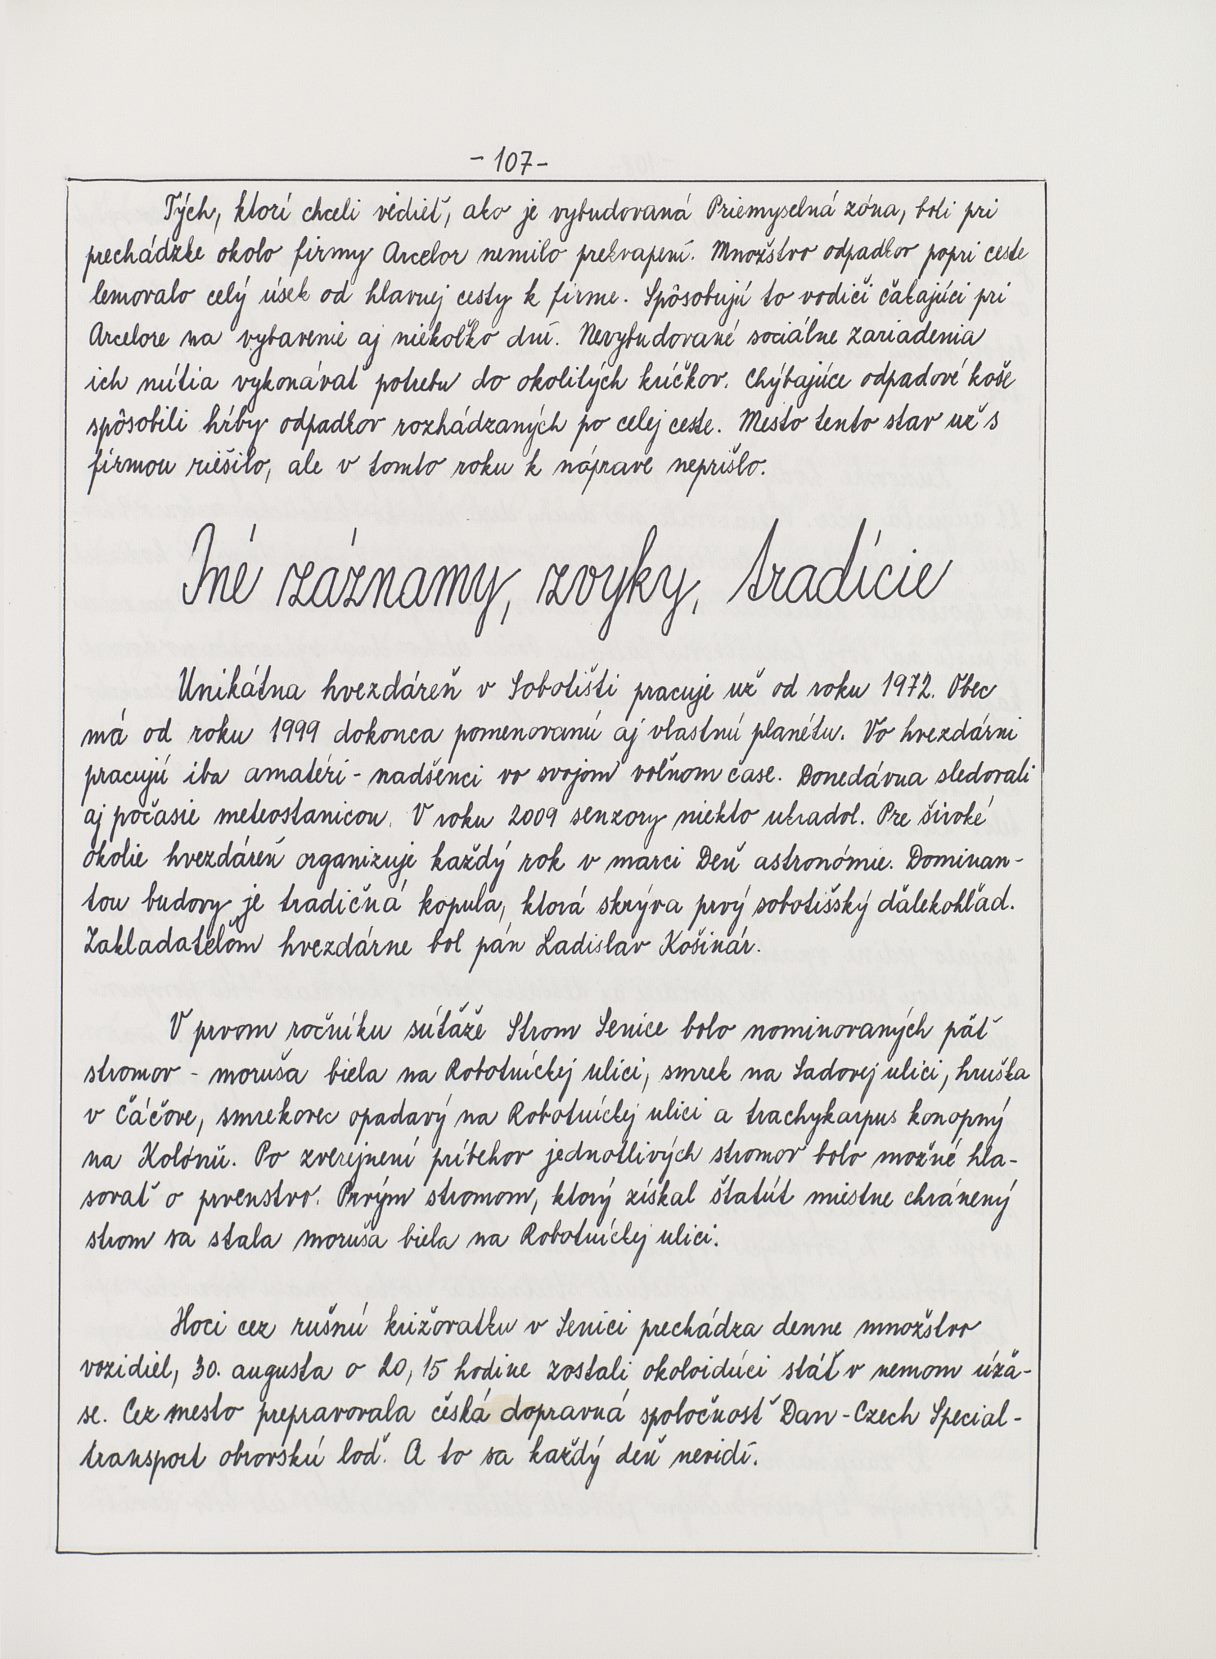 - 107 -
Tých, ktorí chceli vedieť, ako je vybudovaná Priemyselná zóna, boli pri
prechádzke okolo firmy Arcelor nemilo prekvapení. Množstvo odpadkov popri ceste
lemovalo celý úsek od hlavnej cesty k firme. Spôsobujú to vodiči čakajúci pri
Arcelore na vybavenie aj niekoľko dní. Nevybudované sociálne zariadenia
ich nútia vykonávať potrebu do okolitých kríčkov. Chýbajúce odpadové koše
spôsobili hŕby odpadkov rozhádzaných po celej ceste. Mesto tento stav už s
firmou riešilo, ale v tomto roku k náprave neprišlo.
Iné záznamy, zvyky, tradície
Unikátna hvezdáreň v Sobotišti pracuje už od roku 1972. Obec
má od roku 1999 dokonca pomenovanú aj vlastnú planétu. Vo hvezdárni
pracujú iba amatéri - nadšenci vo svojom voľnom čase. Donedávna sledovali
aj počasie meteostanicou. V roku 2009 senzory niekto ukradol. Pre široké
okolie hvezdáreň organizuje každý rok v marci Deň astronómie. Dominan-
tou budovy je tradičná kopula, ktorá skrýva prvý sobotišský ďalekohľad.
Zakladateľom hvezdárne bol pán Ladislav Košinár.
V prvom ročníku súťaže Strom Senice bolo nominovaných päť
stromov - moruša biela na Robotníckej ulici, smrek na Sadovej ulici, hruška
v Čáčove, smrekovec opadavý na Robotníckej ulici a trachykarpus konopný
na Kolónii. Po zverejnení príbehov jednotlivých stromov bolo možné hla-
sovať o prvenstvo. Prvým stromom, ktorý získal štatút miestne chránený
strom sa stala moruša biela na Robotníckej ulici.
Hoci cez rušnú križovatku v Senici prechádza denne množstvo
vozidiel, 30. augusta o 20,15 hodine zostali okoloidúci stáť v nemom úža-
se. Cez mesto prepravovala česká dopravná spoločnosť Dan-Czech Special-
transport obrovskú loď. A to sa každý deň nevidí.